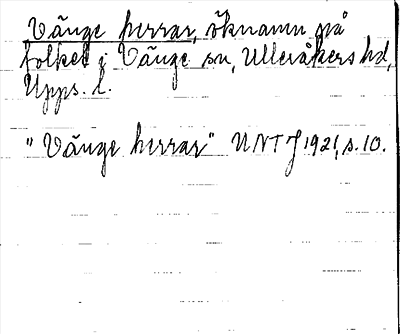 Vänge herrar, öknamn på
folket i Vänge sn, Ulleråkers hd,
Upps. l.
"Vänge herrar" UNT J 1921, s. 10.